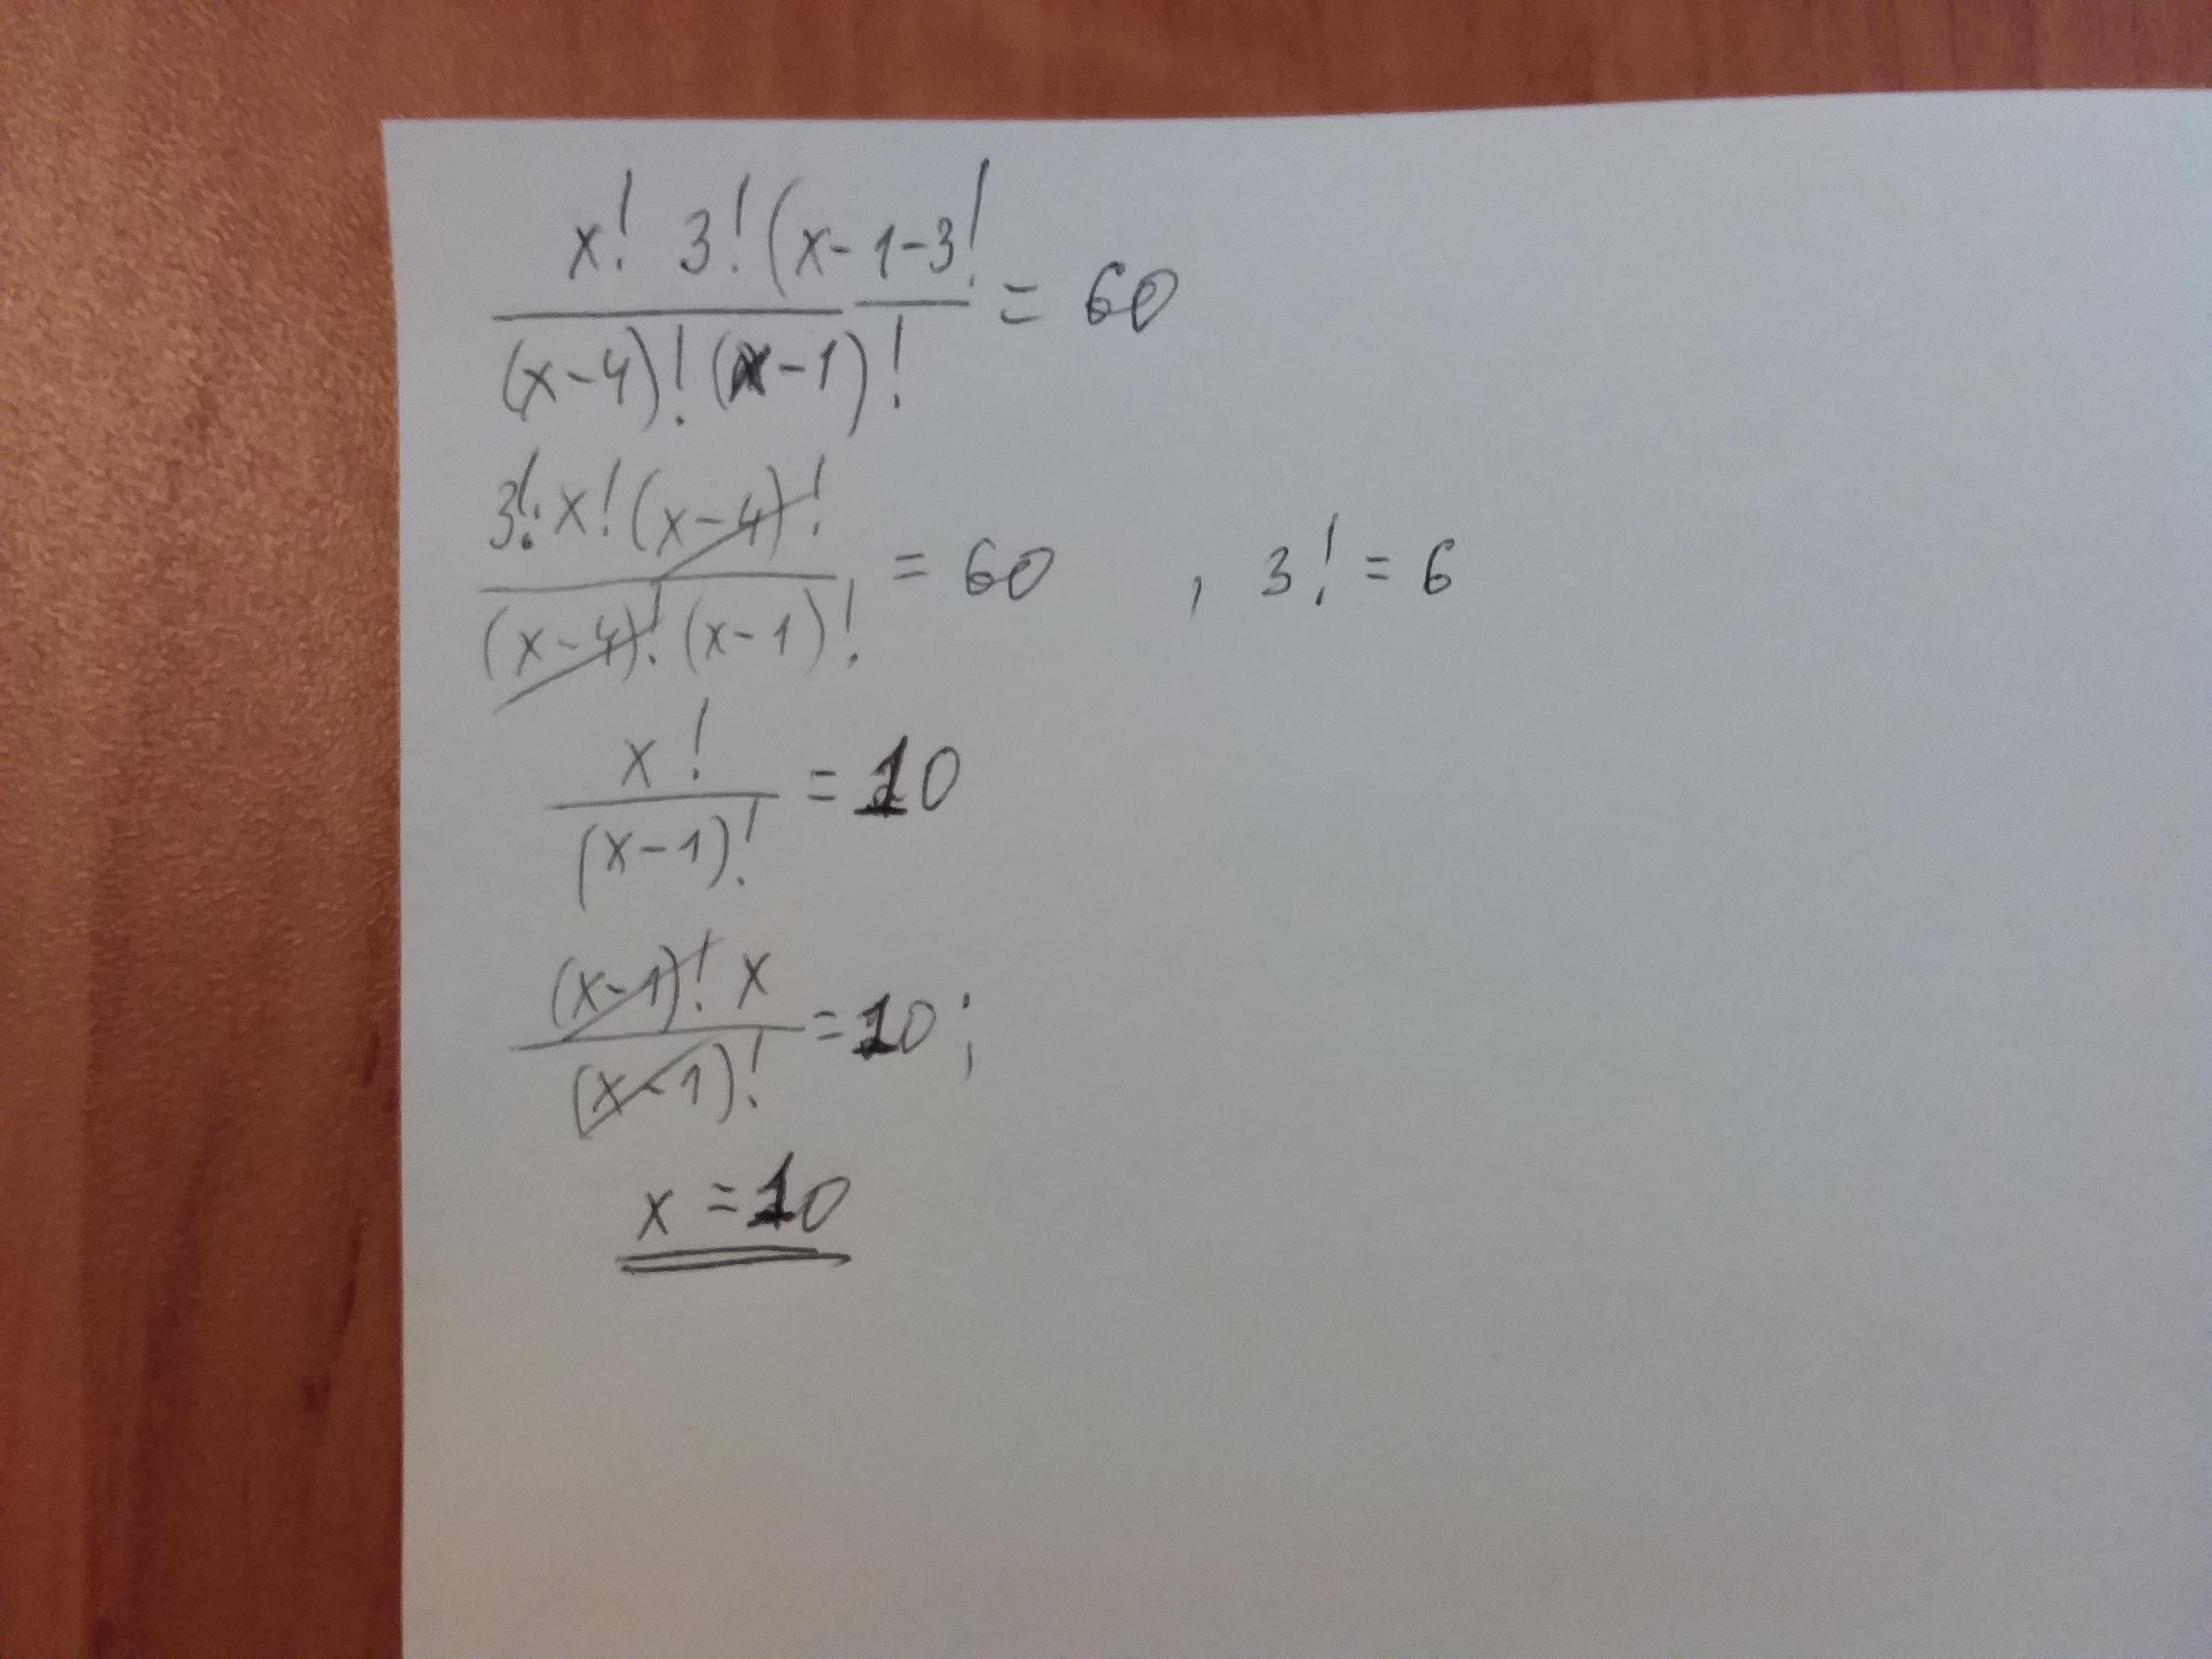 x! 3! (x-1-3!
(x-4)! (x-1)! = 60
3!·x! (x-4)!
(x-4)! (x-1)! = 60 , 3! = 6
x!
(x-1)! = 10
(x-1)! x
(x-1)! = 10;
x = 10